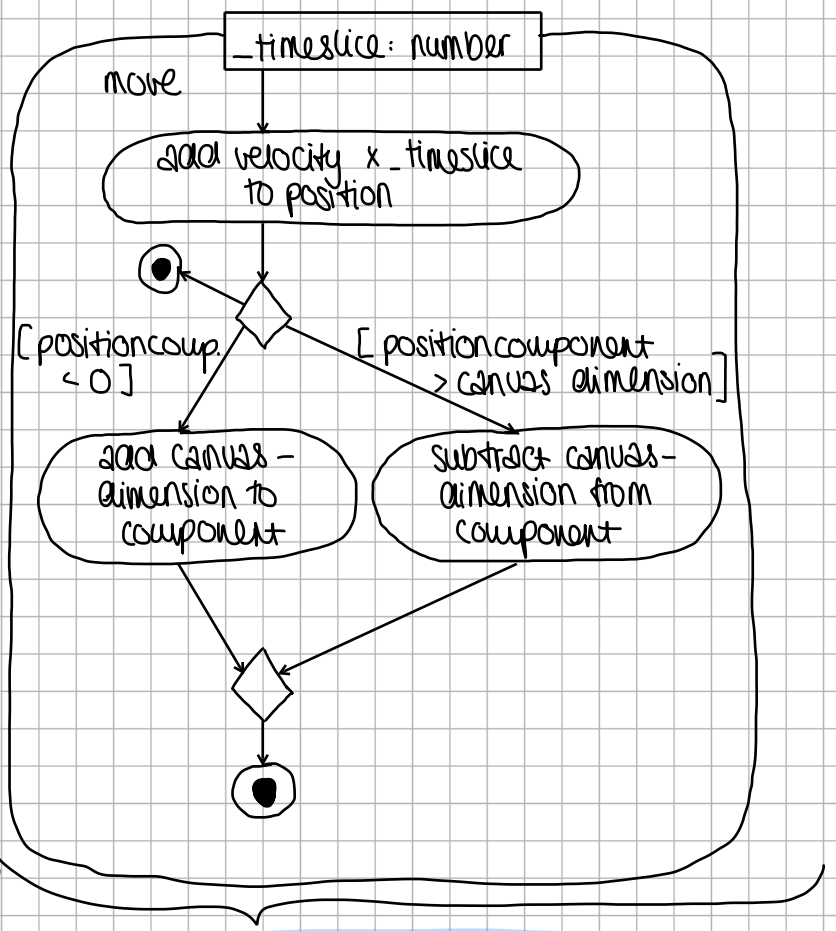 _timeslice: number
move
add velocity x _timeslice
to position
[positioncomp.
< 0]
[positioncomponent
> canvas dimension]
add canvas-
dimension to
component
subtract canvas-
dimension from
component